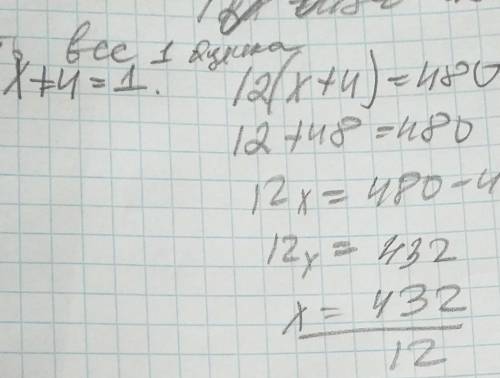 все 1
x+4=1.
12(x+4)=480
12+48=480
12x=480-4
12x=432
x=432
12